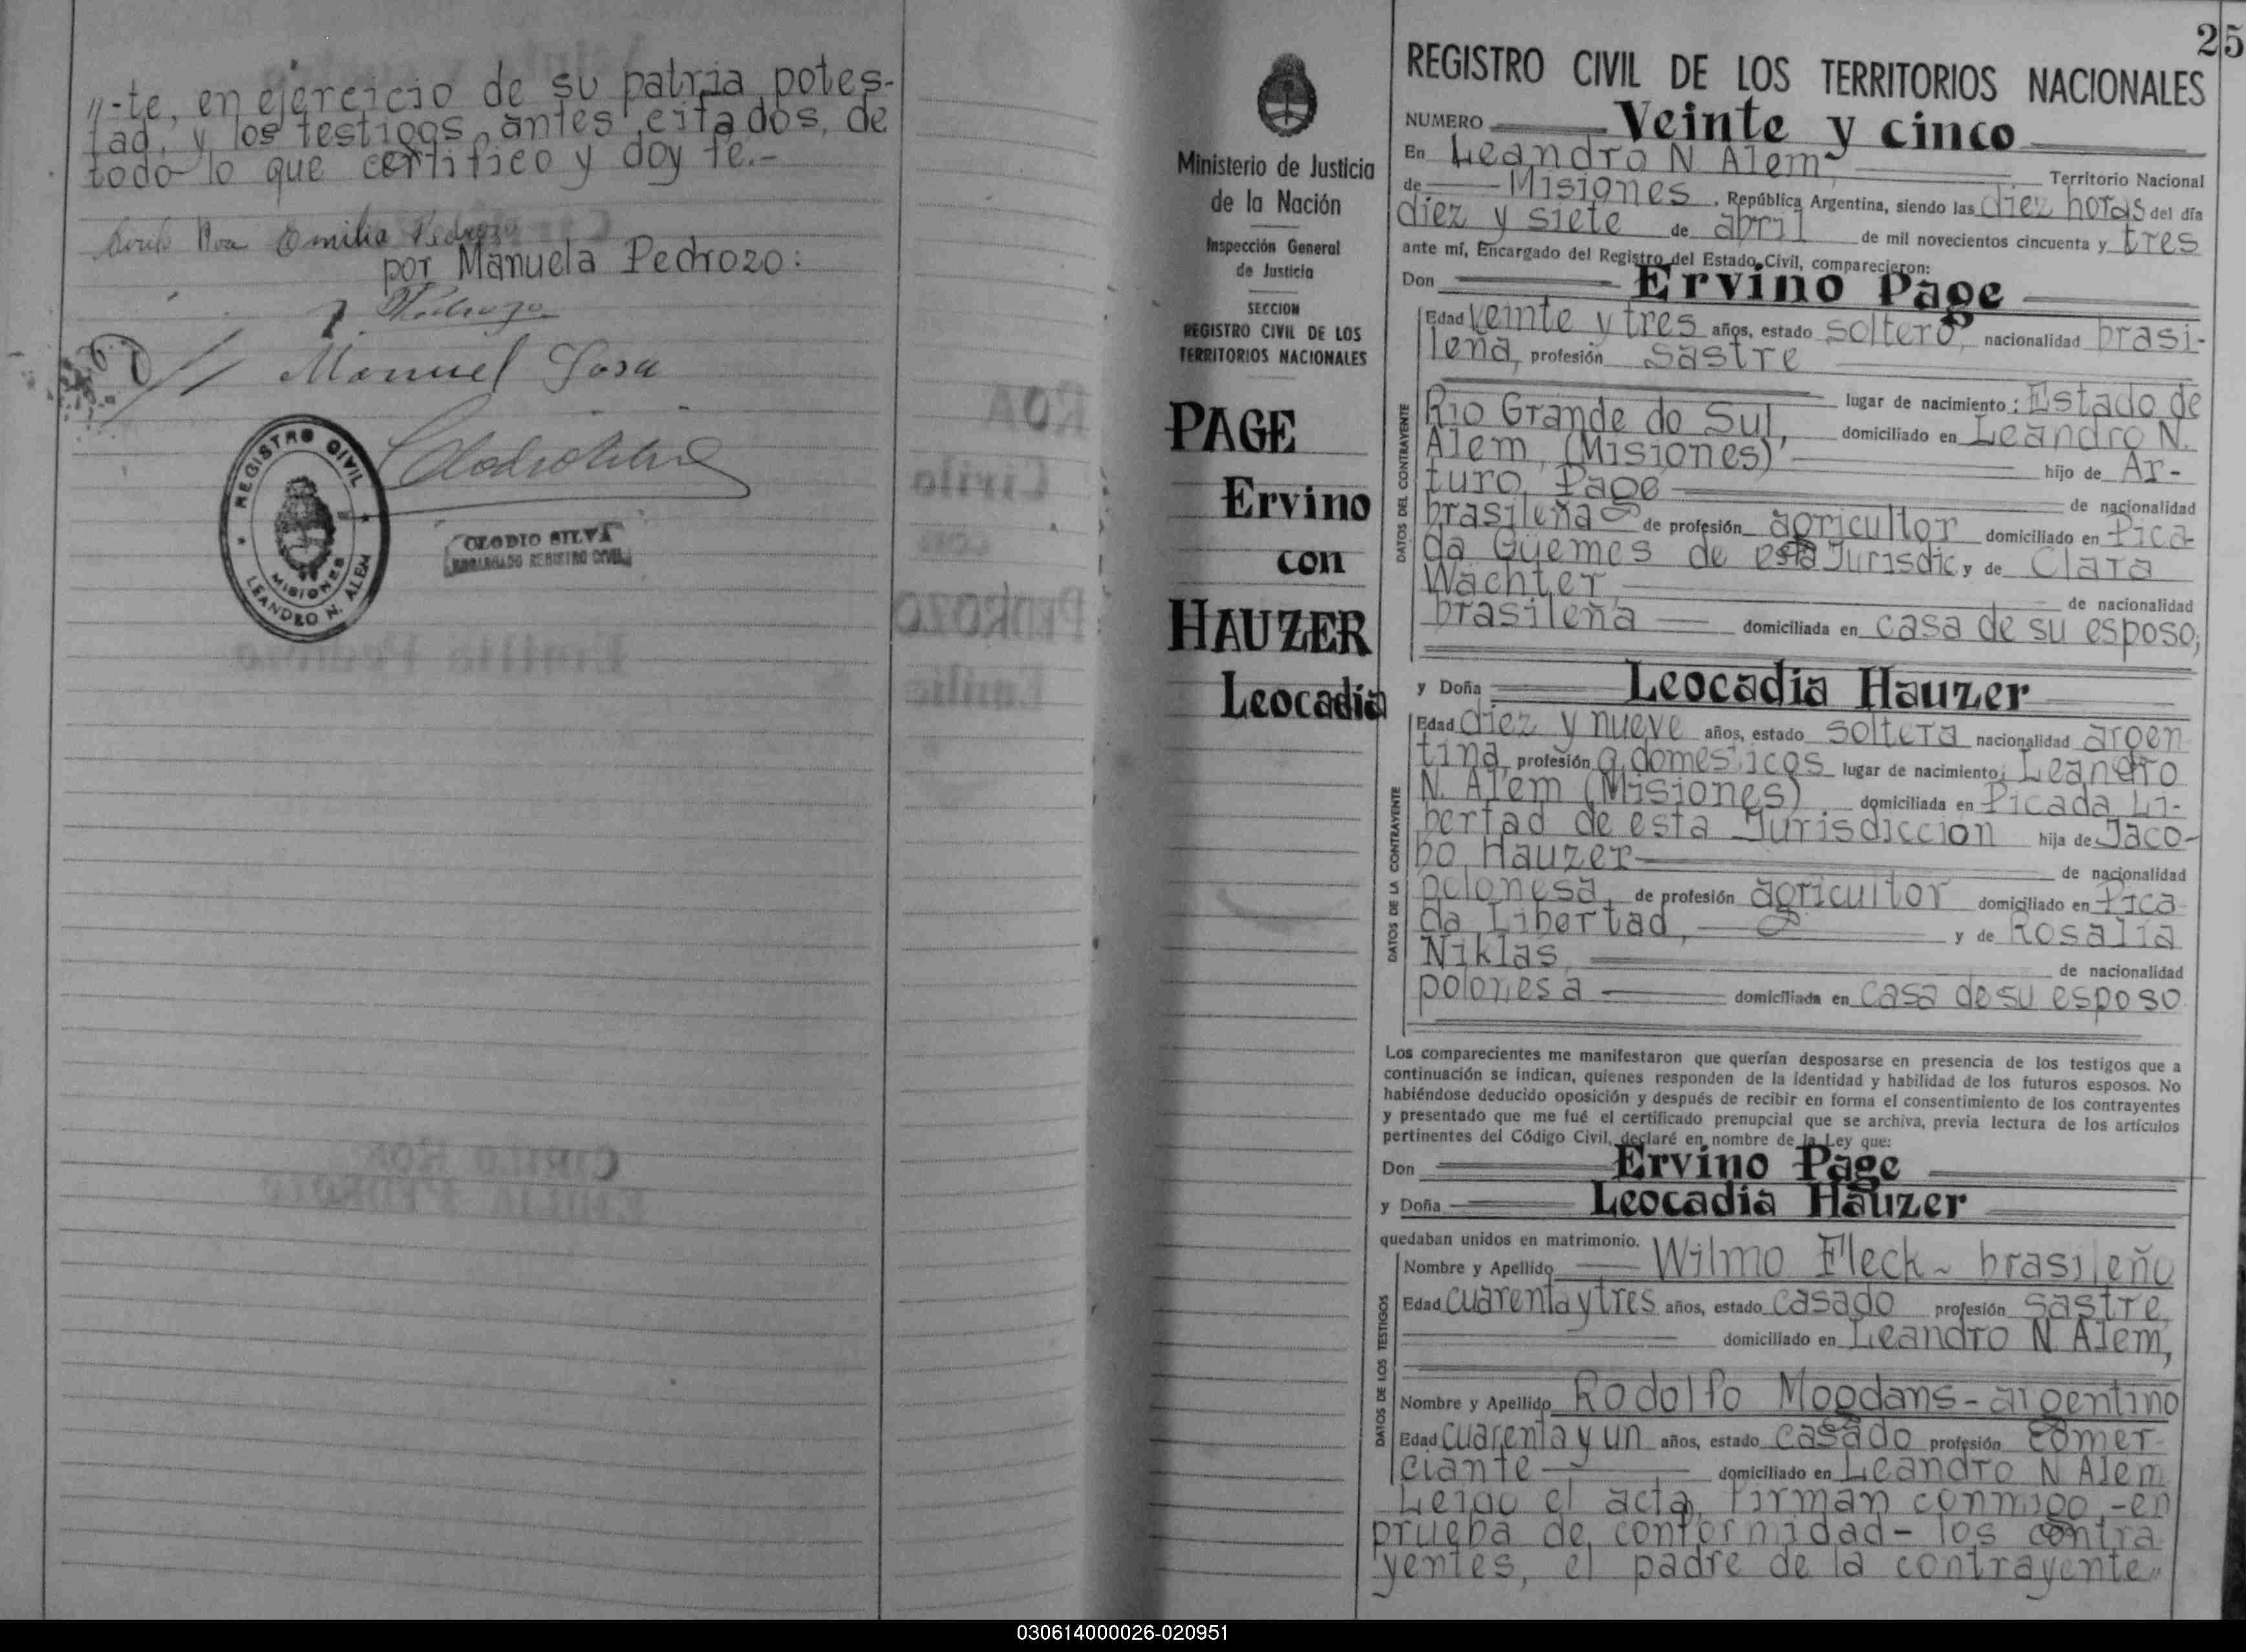 "-te, en ejercicio de su patria potes-
tad, y los testigos antes citados, de
todo lo que certifico y doy fe.-
Roa Emilia Pedrozo
por Manuela Pedrozo:
Pedrozo
Manuel Sosa
REGISTRO CIVIL
MISIONES
LEANDRO N. ALEM
CLODIO SILVA
ENCARGADO REGISTRO CIVIL
25
Ministerio de Justicia
de la Nación
Inspección General
de Justicia
SECCION
REGISTRO CIVIL DE LOS
TERRITORIOS NACIONALES
PAGE
Ervino
con
HAUZER
Leocadia
REGISTRO CIVIL DE LOS TERRITORIOS NACIONALES
NUMERO Veinte y cinco
En Leandro N. Alem, Territorio Nacional
de Misiones, República Argentina, siendo las diez horas del día
diez y siete de abril de mil novecientos cincuenta y tres
ante mí, Encargado del Registro del Estado Civil, comparecieron:
Don Ervino Page
DATOS DEL CONTRAYENTE
Edad veinte y tres años, estado soltero, nacionalidad brasi-
leña, profesión sastre
lugar de nacimiento: Estado de
Rio Grande do Sul, domiciliado en Leandro N.
Alem, (Misiones) hijo de Ar-
turo Page de nacionalidad
brasileña de profesión agricultor domiciliado en Pica-
da Güemes de esta Jurisdic y de Clara
Wachter, de nacionalidad
brasileña domiciliada en casa de su esposo,
y Doña Leocadia Hauzer
DATOS DE LA CONTRAYENTE
Edad diez y nueve años, estado soltera nacionalidad argen
tina, profesión q. domesticos lugar de nacimiento: Leandro
N. Alem (Misiones) domiciliada en Picada Li-
bertad de esta Jurisdiccion hija de Jaco-
bo Hauzer de nacionalidad
polonesa, de profesión agricultor domiciliado en Pica-
da Libertad, y de Rosalia
Niklas, de nacionalidad
polonesa domiciliada en casa de su esposo
Los comparecientes me manifestaron que querían desposarse en presencia de los testigos que a
continuación se indican, quienes responden de la identidad y habilidad de los futuros esposos. No
habiéndose deducido oposición y después de recibir en forma el consentimiento de los contrayentes
y presentado que me fué el certificado prenupcial que se archiva, previa lectura de los artículos
pertinentes del Código Civil, declaré en nombre de la Ley que:
Don Ervino Page
y Doña Leocadia Hauzer
quedaban unidos en matrimonio.
DATOS DE LOS TESTIGOS
Nombre y Apellido Wilmo Fleck - brasileño
Edad cuarenta y tres años, estado casado profesión sastre,
domiciliado en Leandro N. Alem,
Nombre y Apellido Rodolfo Mogdans - argentino
Edad cuarenta y un años, estado casado profesión comer-
ciante domiciliado en Leandro N Alem
Leido el acta, firman conmigo, -en
prueba de conformidad- los contra
yentes, el padre de la contrayente"
030614000026-020951